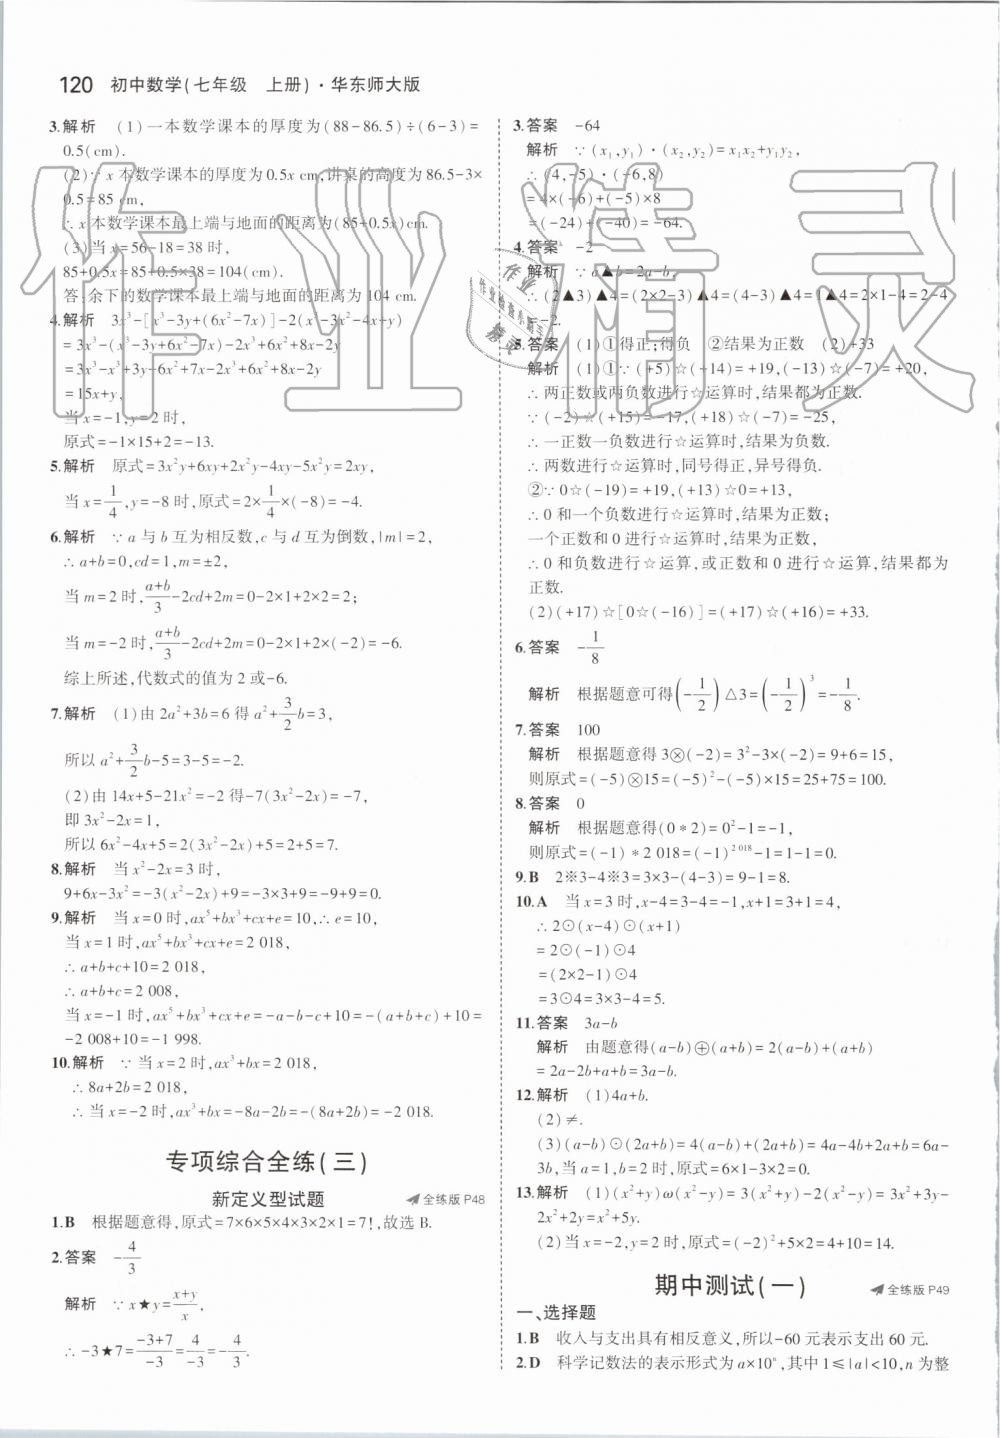 120 初中数学(七年级 上册)·华东师大版
3.解析 (1)一本数学课本的厚度为(88-86.5)÷(6-3)=
0.5(cm).
(2)∵x本数学课本的厚度为0.5x cm,讲桌的高度为86.5-3×
0.5=85 cm,
∴x本数学课本最上端与地面的距离为(85+0.5x)cm.
(3)当x=56-18=38时,
85+0.5x=85+0.5×38=104(cm).
答:余下的数学课本最上端与地面的距离为104 cm.
4.解析 3x³-[x³-3y+(6x²-7x)]-2(x-3x²-4x+y)
=3x³-(x³-3y+6x²-7x)-2x+6x²+8x-2y
=3x³-x³+3y-6x²+7x-2x³+6x²+8x-2y
=15x+y,
当x=-1,y=2时,
原式=-1×15+2=-13.
5.解析 原式=3x²y+6xy+2x²y-4xy-5x²y=2xy,
当x=1/4,y=-8时,原式=2×1/4×(-8)=-4.
6.解析 ∵a与b互为相反数,c与d互为倒数,|m|=2,
∴a+b=0,cd=1,m=±2,
当m=2时,(a+b)/3-2cd+2m=0-2×1+2×2=2;
当m=-2时,(a+b)/3-2cd+2m=0-2×1+2×(-2)=-6.
综上所述,代数式的值为2或-6.
7.解析 (1)由2a²+3b=6得a²+3/2b=3,
所以a²+3/2b-5=3-5=-2.
(2)由14x+5-21x²=-2得-7(3x²-2x)=-7,
即3x²-2x=1,
所以6x²-4x+5=2(3x²-2x)+5=2+5=7.
8.解析 当x²-2x=3时,
9+6x-3x²=-3(x²-2x)+9=-3×3+9=-9+9=0.
9.解析 当x=0时,ax⁵+bx³+cx+e=10,∴e=10,
当x=1时,ax⁵+bx³+cx+e=2 018,
∴a+b+c+10=2 018,
∴a+b+c=2 008,
当x=-1时,ax⁵+bx³+cx+e=-a-b-c+10=-(a+b+c)+10=
-2 008+10=-1 998.
10.解析 ∵当x=2时,ax³+bx=2 018,
∴8a+2b=2 018,
∴当x=-2时,ax³+bx=-8a-2b=-(8a+2b)=-2 018.
专项综合全练(三)
新定义型试题 全练版P48
1.B 根据题意得,原式=7×6×5×4×3×2×1=7!,故选B.
2.答案 -4/3
解析 ∵x★y=(x+y)/x,
∴-3★7=(-3+7)/-3=4/-3=-4/3.
3.答案 -64
解析 ∵(x₁,y₁)·(x₂,y₂)=x₁x₂+y₁y₂,
∴(4,-5)·(-6,8)
=4×(-6)+(-5)×8
=(-24)+(-40)=-64.
4.答案 -2
解析 ∵a▲b=2a-b,
∴(2▲3)▲4=(2×2-3)▲4=(4-3)▲4=1▲4=2×1-4=2-4
=-2.
5.答案 (1)①得正;得负 ②结果为正数 (2)+33
解析 (1)①∵(+5)☆(+14)=+19,(-13)☆(-7)=+20,
∴两正数或两负数进行☆运算时,结果都为正数.
∵(-2)☆(+15)=-17,(+18)☆(-7)=-25,
∴一正数一负数进行☆运算时,结果为负数.
∴两数进行☆运算时,同号得正,异号得负.
②∵0☆(-19)=+19,(+13)☆0=+13,
∴0和一个负数进行☆运算时,结果为正数;
一个正数和0进行☆运算时,结果为正数,
∴0和负数进行☆运算,或正数和0进行☆运算,结果都为
正数.
(2)(+17)☆[0☆(-16)]=(+17)☆(+16)=+33.
6.答案 -1/8
解析 根据题意可得(-1/2)△3=(-1/2)³=-1/8.
7.答案 100
解析 根据题意得3⊗(-2)=3²-3×(-2)=9+6=15,
则原式=(-5)⊗15=(-5)²-(-5)×15=25+75=100.
8.答案 0
解析 根据题意得(0*2)=0²-1=-1,
则原式=(-1)*2 018=(-1)²⁰¹⁸-1=1-1=0.
9.B 2※3-4※3=3×3-(4-3)=9-1=8.
10.A 当x=3时,x-4=3-4=-1,x+1=3+1=4,
∴2⊙(x-4)⊙(x+1)
=2⊙(-1)⊙4
=(2×2-1)⊙4
=3⊙4=3×3-4=5.
11.答案 3a-b
解析 由题意得(a-b)⊕(a+b)=2(a-b)+(a+b)
=2a-2b+a+b=3a-b.
12.解析 (1)4a+b.
(2)≠.
(3)(a-b)⊙(2a+b)=4(a-b)+(2a+b)=4a-4b+2a+b=6a-
3b,当a=1,b=2时,原式=6×1-3×2=0.
13.解析 (1)(x²+y)ω(x²-y)=3(x²+y)-2(x²-y)=3x²+3y-
2x²+2y=x²+5y.
(2)当x=-2,y=2时,原式=(-2)²+5×2=4+10=14.
期中测试(一) 全练版P49
一、选择题
1.B 收入与支出具有相反意义,所以-60元表示支出60元.
2.D 科学记数法的表示形式为a×10ⁿ,其中1≤|a|<10,n为整
作业精灵